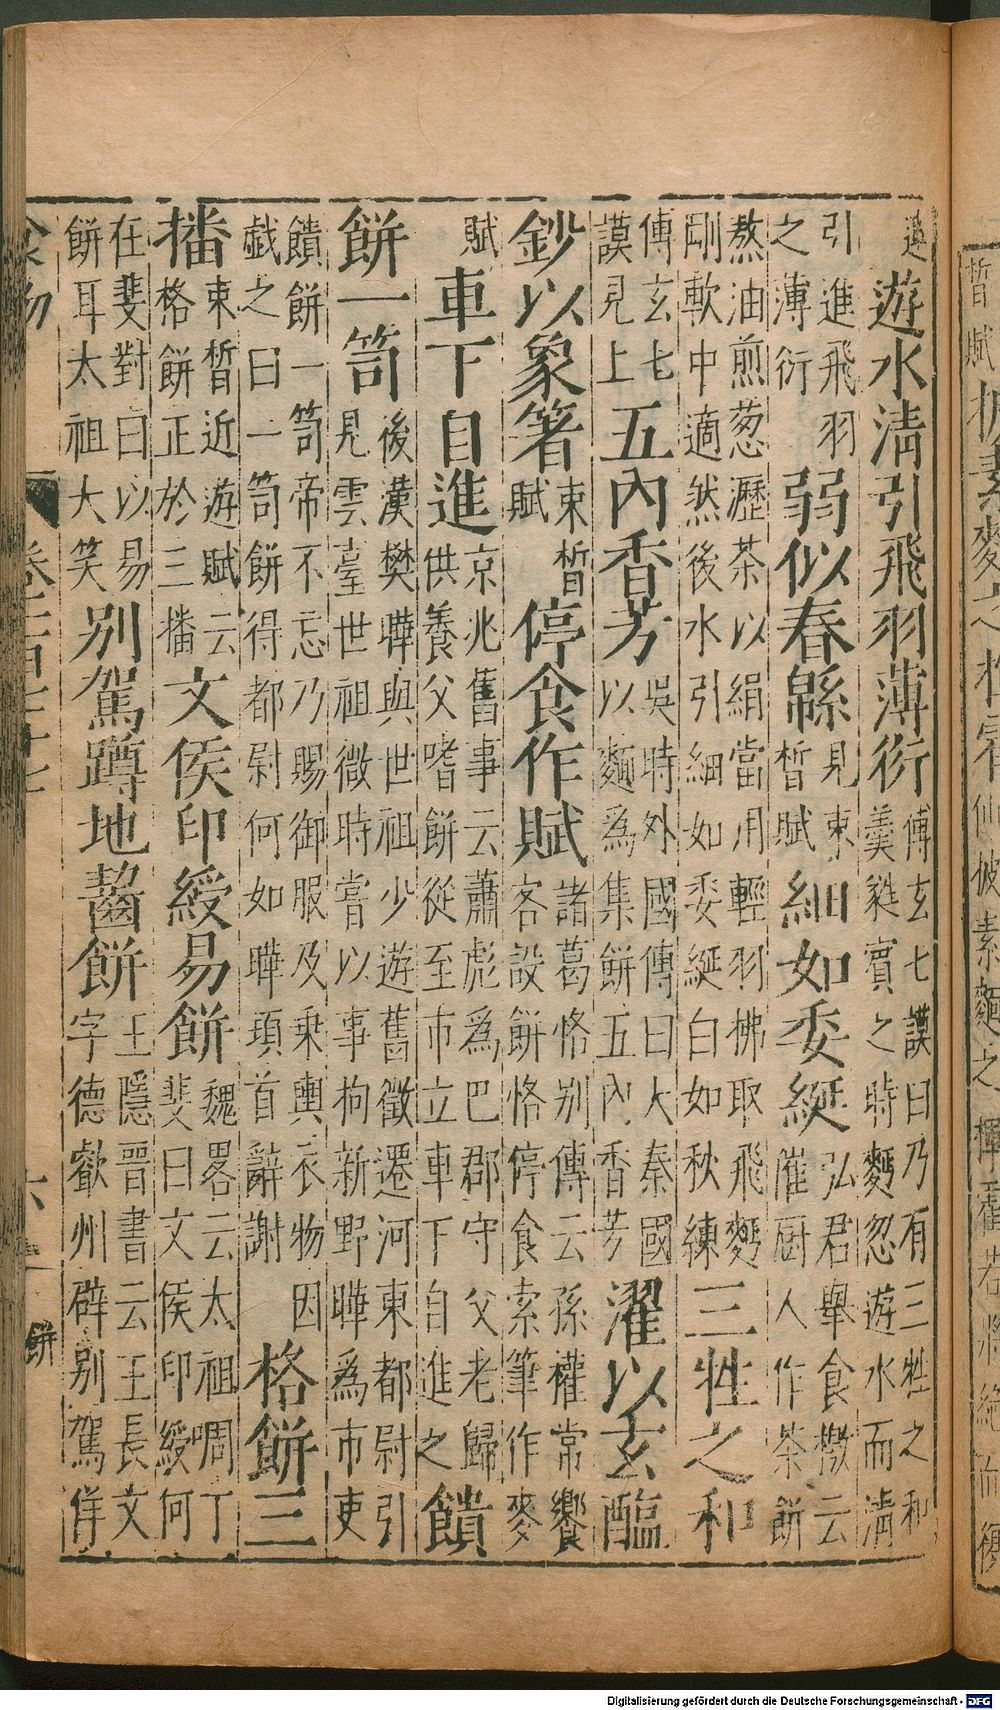 遊水清引飛羽薄衍傅玄七謨曰乃有三牲之和羹蕤賓之時麪忽遊水而清
引進飛羽之薄衍弱似春緜見束皙賦細如委綖弘君舉食檄云催厨人作茶餅
熬油煎葱瀝茶以絹當用輕羽拂取飛麪剛軟中適然後水引細如委綖白如秋練三牲之和
傅玄七謨見上五內香芳吳時外國傳曰大秦國以麵為集餅五內香芳濯以玄醢
鈔以象箸束皙賦停食作賦諸葛恪别傳云孫權常饗客設餅恪停食索筆作麥
賦車下自進京兆舊事云蕭彪為巴郡守父老歸供養父嗜餅從至市立車下自進之饋
餅一笥後漢樊曄與世祖少遊舊徵遷河東都尉引見雲臺世祖微時嘗以事拘新野曄為市吏
饋餅一笥帝不忘乃賜御服及乘輿衣物因戲之曰一笥餅得都尉何如曄頊首辭謝格餅三
播束皙近遊賦云格餅正於三播文侯印綬易餅魏畧云太祖啁丁斐曰文侯印綬何
在斐對曰以易餅耳太祖大笑別駕蹲地齧餅王隱晉書云王長文字德叡州辟别駕佯
餅
Digitalisierung gefördert durch die Deutsche Forschungsgemeinschaft - DFG